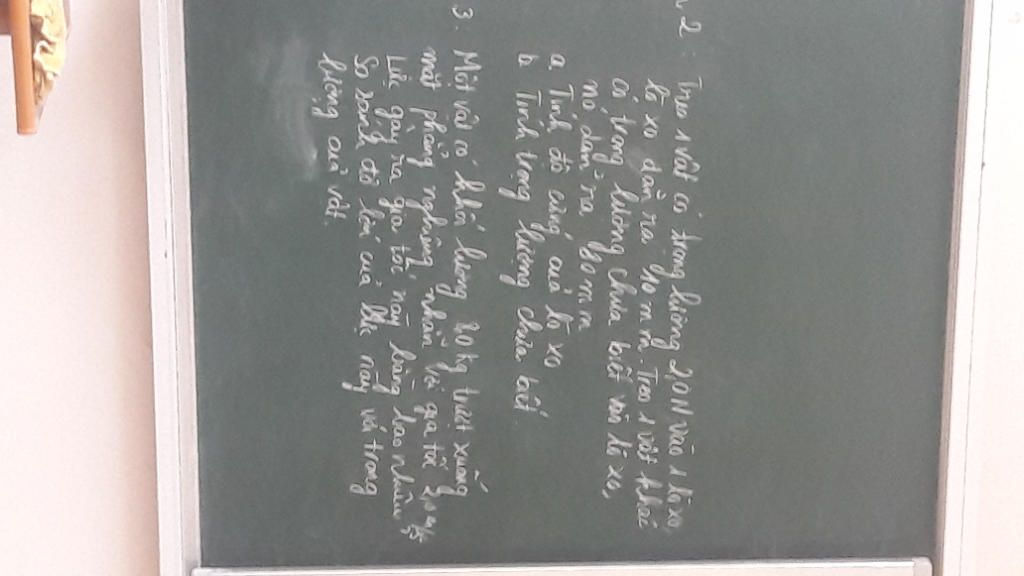 2: Treo 1 vật có trọng lượng 2,0N vào 1 lò xo,
lò xo dãn ra 10mm. Treo 1 vật khác
có trọng lượng chưa biết vào lò xo,
nó dãn ra 80mm
a. Tính độ cứng của lò xo
b Tính trọng lượng chưa biết
3: Một vật có khối lượng kg trượt xuống
mặt phẳng nghiêng nhẵn với gia tốc 2,0 m/s
Lực gây ra gia tốc này bằng bao nhiêu
So sánh độ lớn của lực này với trọng
lượng của vật.